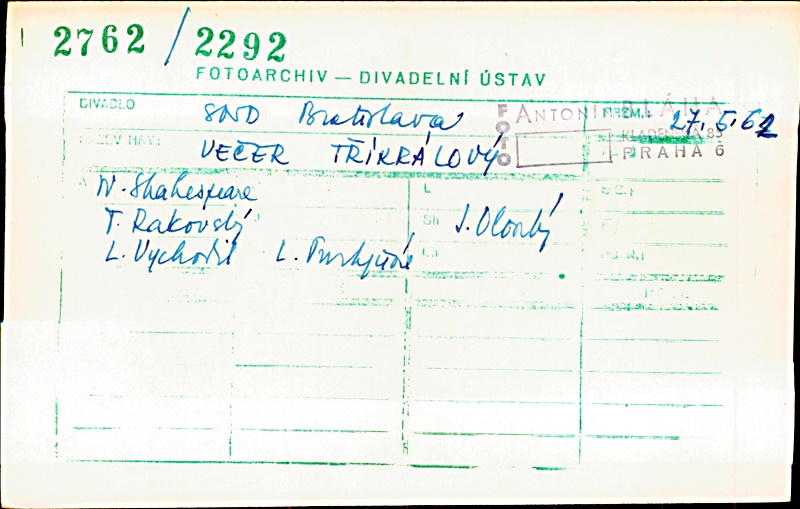 2762 / 2292
FOTOARCHIV — DIVADELNÍ ÚSTAV
DIVADLO SND Bratislava PREM.: 27.5.62
NÁZEV HRY: VEČER TŘÍKRÁLOVÝ
FOTO ANTONÍN BLÁHA
KLADENSKÁ 85
PRAHA 6
A W. Shakespeare L
T. Rakovský Sh J. Vlonský
L. Vychodil L. Purkyňová